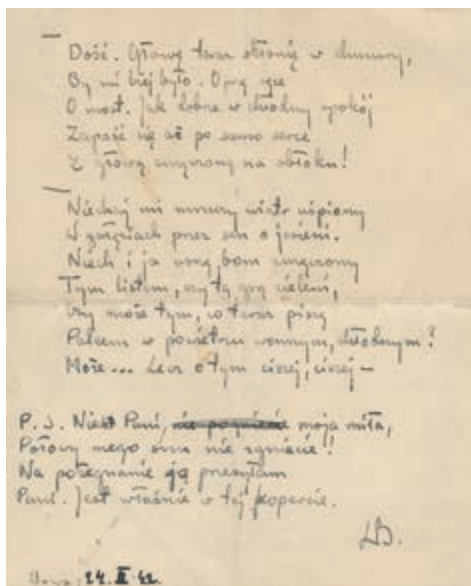 Dość. Głowę teraz skłonię w chmury,
By mi lżej było. Oprę ręce
O most. Jak dobrze w chłodny spokój
Zapaść się aż po samo serce
Z głową zmęczoną na obłoku!
Niechaj mi mruczy wiatr uśpiony
W gałęziach przez sen o jesieni.
Niech i ja usnę bom zmęczony
Tym listem, czy tą grą zieleni,
Czy może tym, co teraz piszę
Palcem w powietrzu wonnym, chłodnym?
Może... Lecz o tym ciszej, ciszej –
P.S. Niech Pani, moja miła,
Połowy mego snu nie zgniecie!
Na pożegnanie ją przesyłam
Pani. Jest właśnie w tej kopercie.
24. 42.